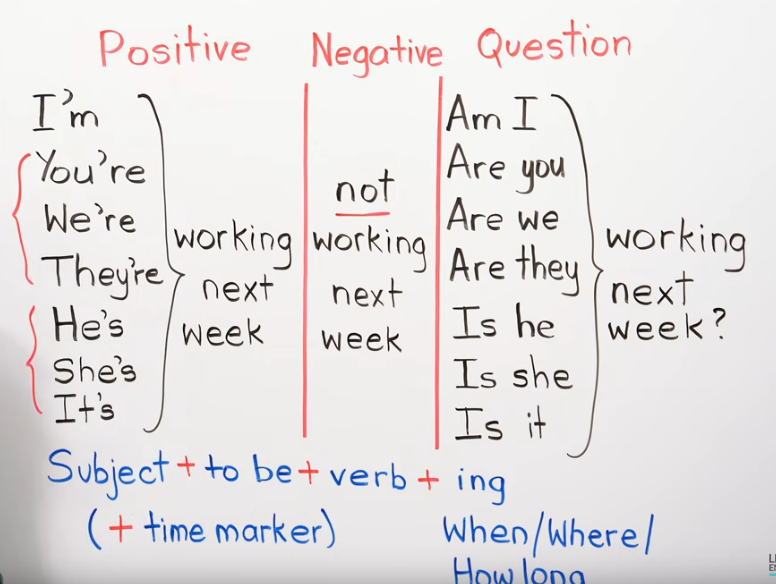 Positive
I'm
You're
We're
They're
He's
She's
It's
working
next
week
Negative
not
working
next
week
Question
Am I
Are you
Are we
Are they
Is he
Is she
Is it
working
next
week?
Subject + to be + verb + ing
(+ time marker)
When/Where/
How long